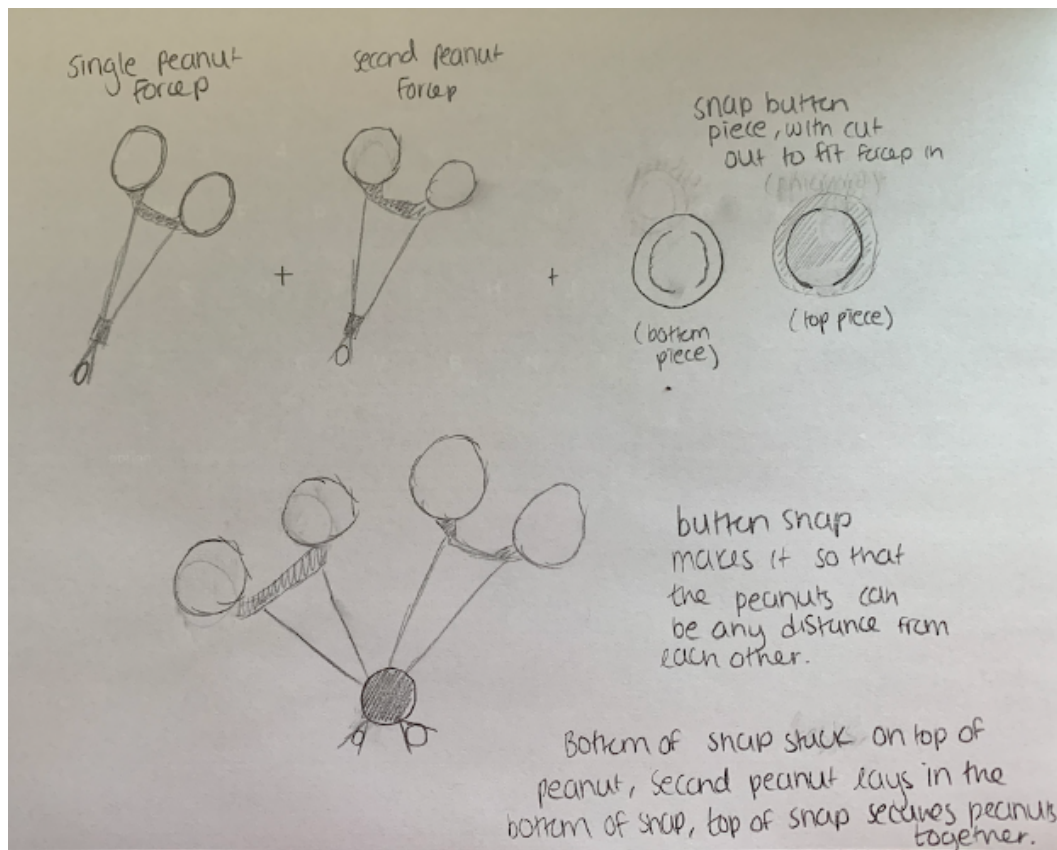 single peanut
forcep
second peanut
forcep
snap button
piece, with cut
out to fit forcep in
+
+
(bottom
piece)
(top piece)
button snap
makes it so that
the peanuts can
be any distance from
each other.
Bottom of snap stuck on top of
peanut, second peanut lays in the
bottom of snap, top of snap secures peanuts
together.